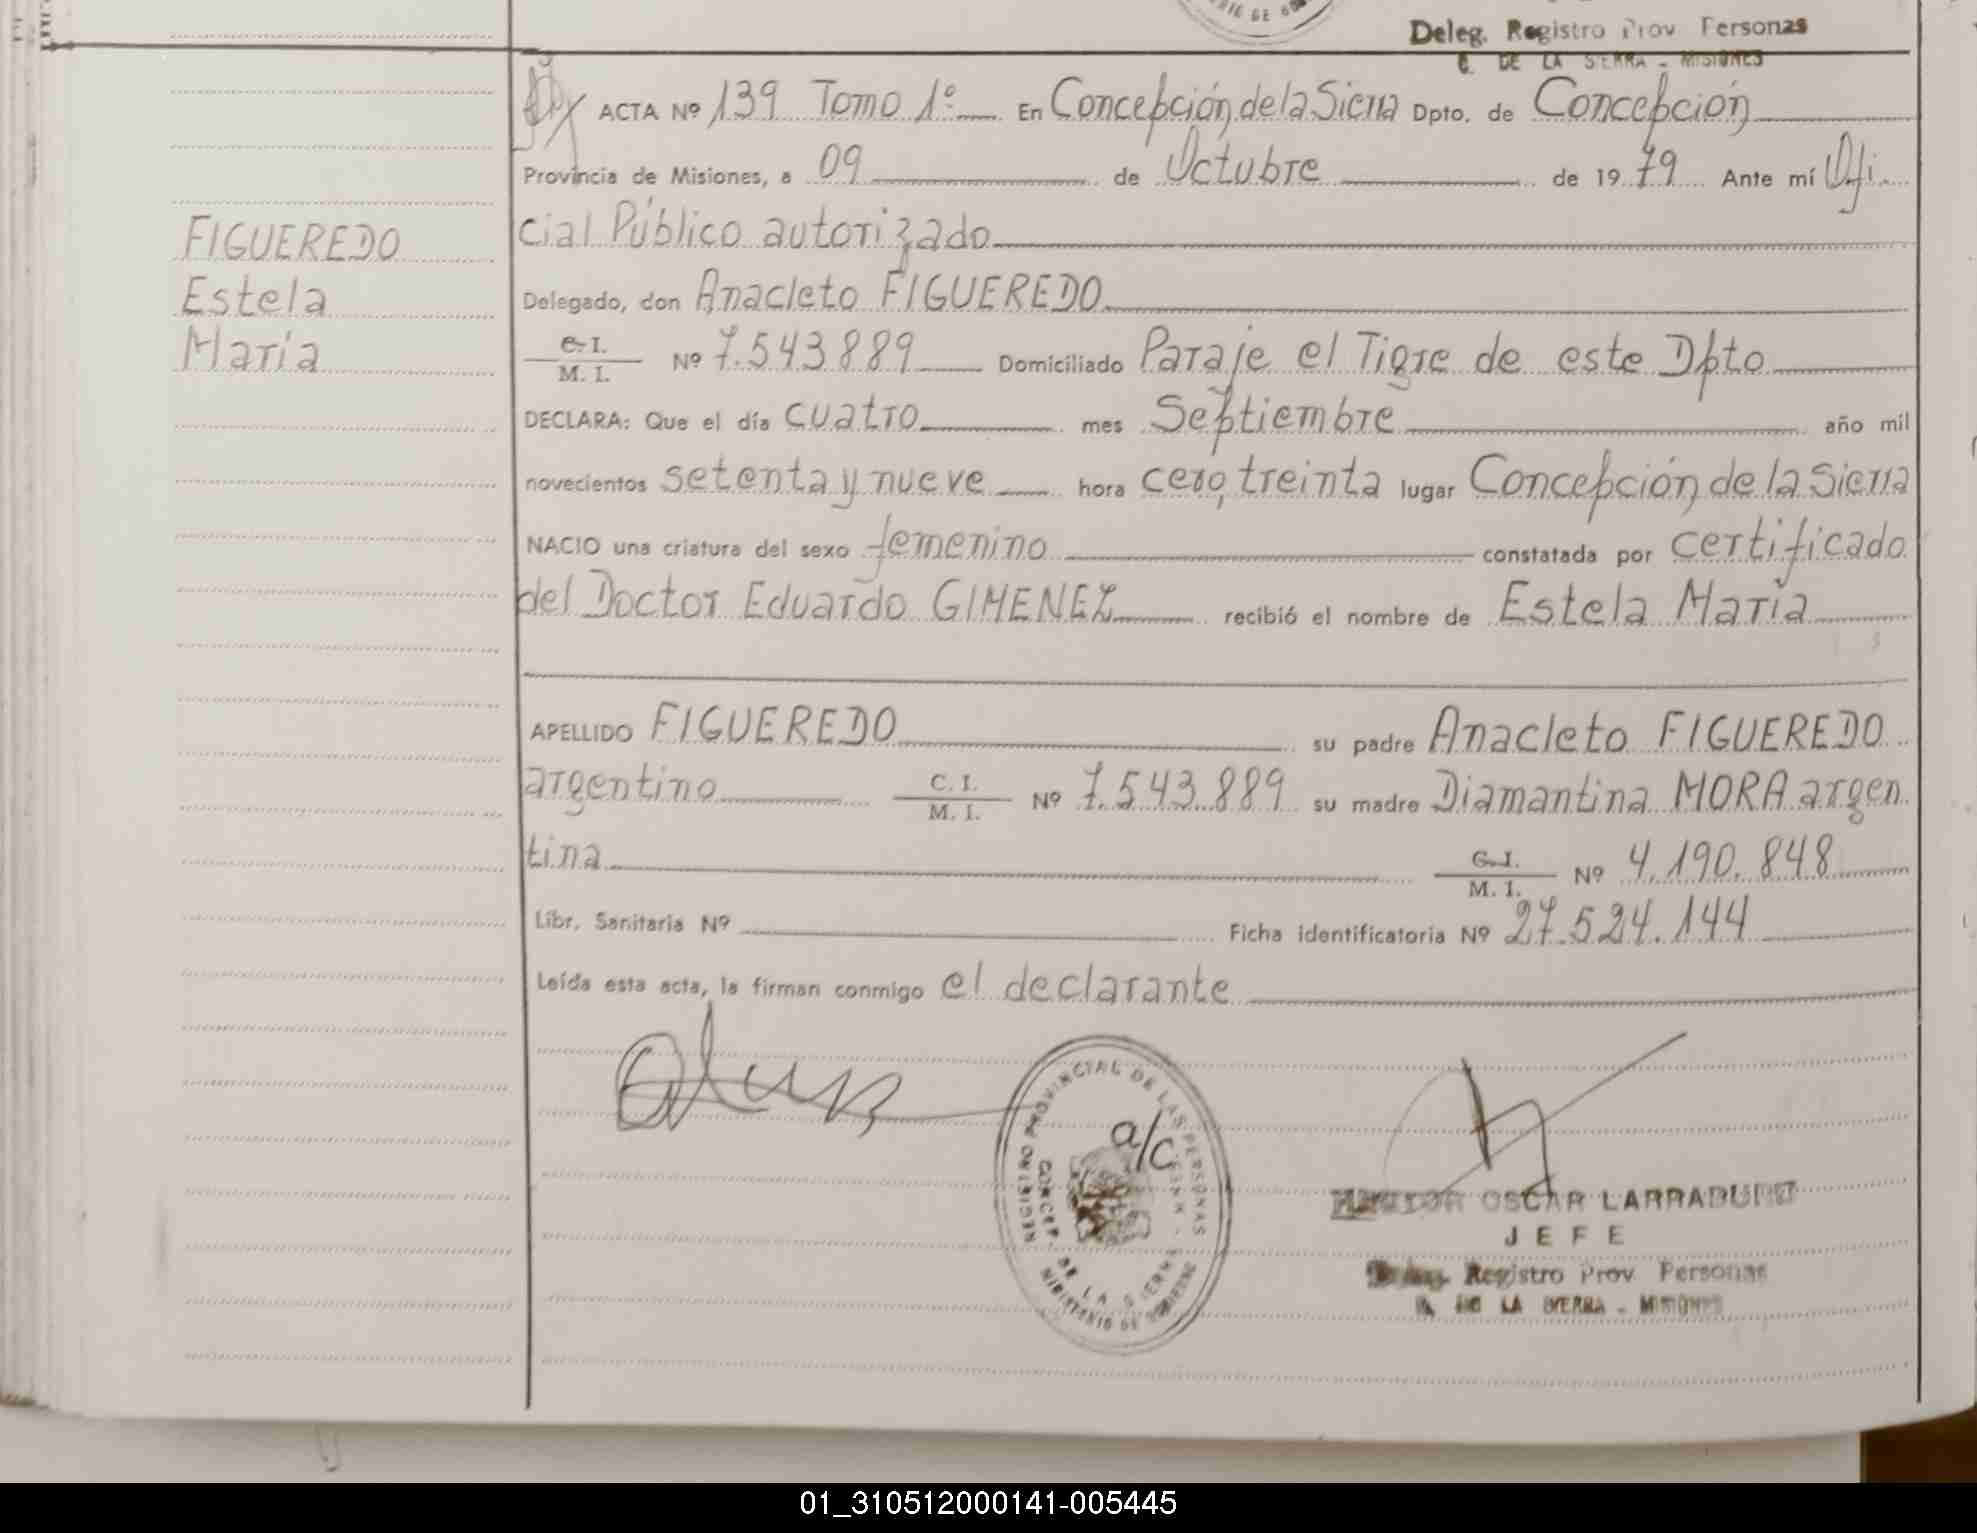 Deleg. Registro Prov Personas
C. DE LA SIERRA - MISIONES
ACTA Nº 139 Tomo 1º En Concepción de la Sierra Dpto. de Concepción
Provincia de Misiones, a 09 de Octubre de 1979 Ante mí Ofi.
cial Público autorizado
FIGUEREDO
Estela
María
Delegado, don Anacleto FIGUEREDO
C. I.
M. I.
Nº 7.543.889 Domiciliado Paraje el Tigre de este Dpto
DECLARA: Que el día cuatro mes Septiembre año mil
novecientos setenta y nueve hora cero, treinta lugar Concepción de la Sierra
NACIO una criatura del sexo femenino constatada por certificado
del Doctor Eduardo GIMENEZ recibió el nombre de Estela María
APELLIDO FIGUEREDO su padre Anacleto FIGUEREDO
argentino C. I. Nº 7.543.889 su madre Diamantina MORA argen
M. I.
tina C. I. Nº 4.190.848
M. I.
Libr. Sanitaria Nº Ficha identificatoria Nº 27.524.144
Leída esta acta, la firman conmigo el declarante
REGISTRO PROVINCIAL DE LAS PERSONAS
a/c
CONCEP. DE LA SIERRA
MINISTERIO DE GOBIERNO
OSCAR LARRABURU
JEFE
Deleg. Registro Prov Personas
C. DE LA SIERRA - MISIONES
01_310512000141-005445